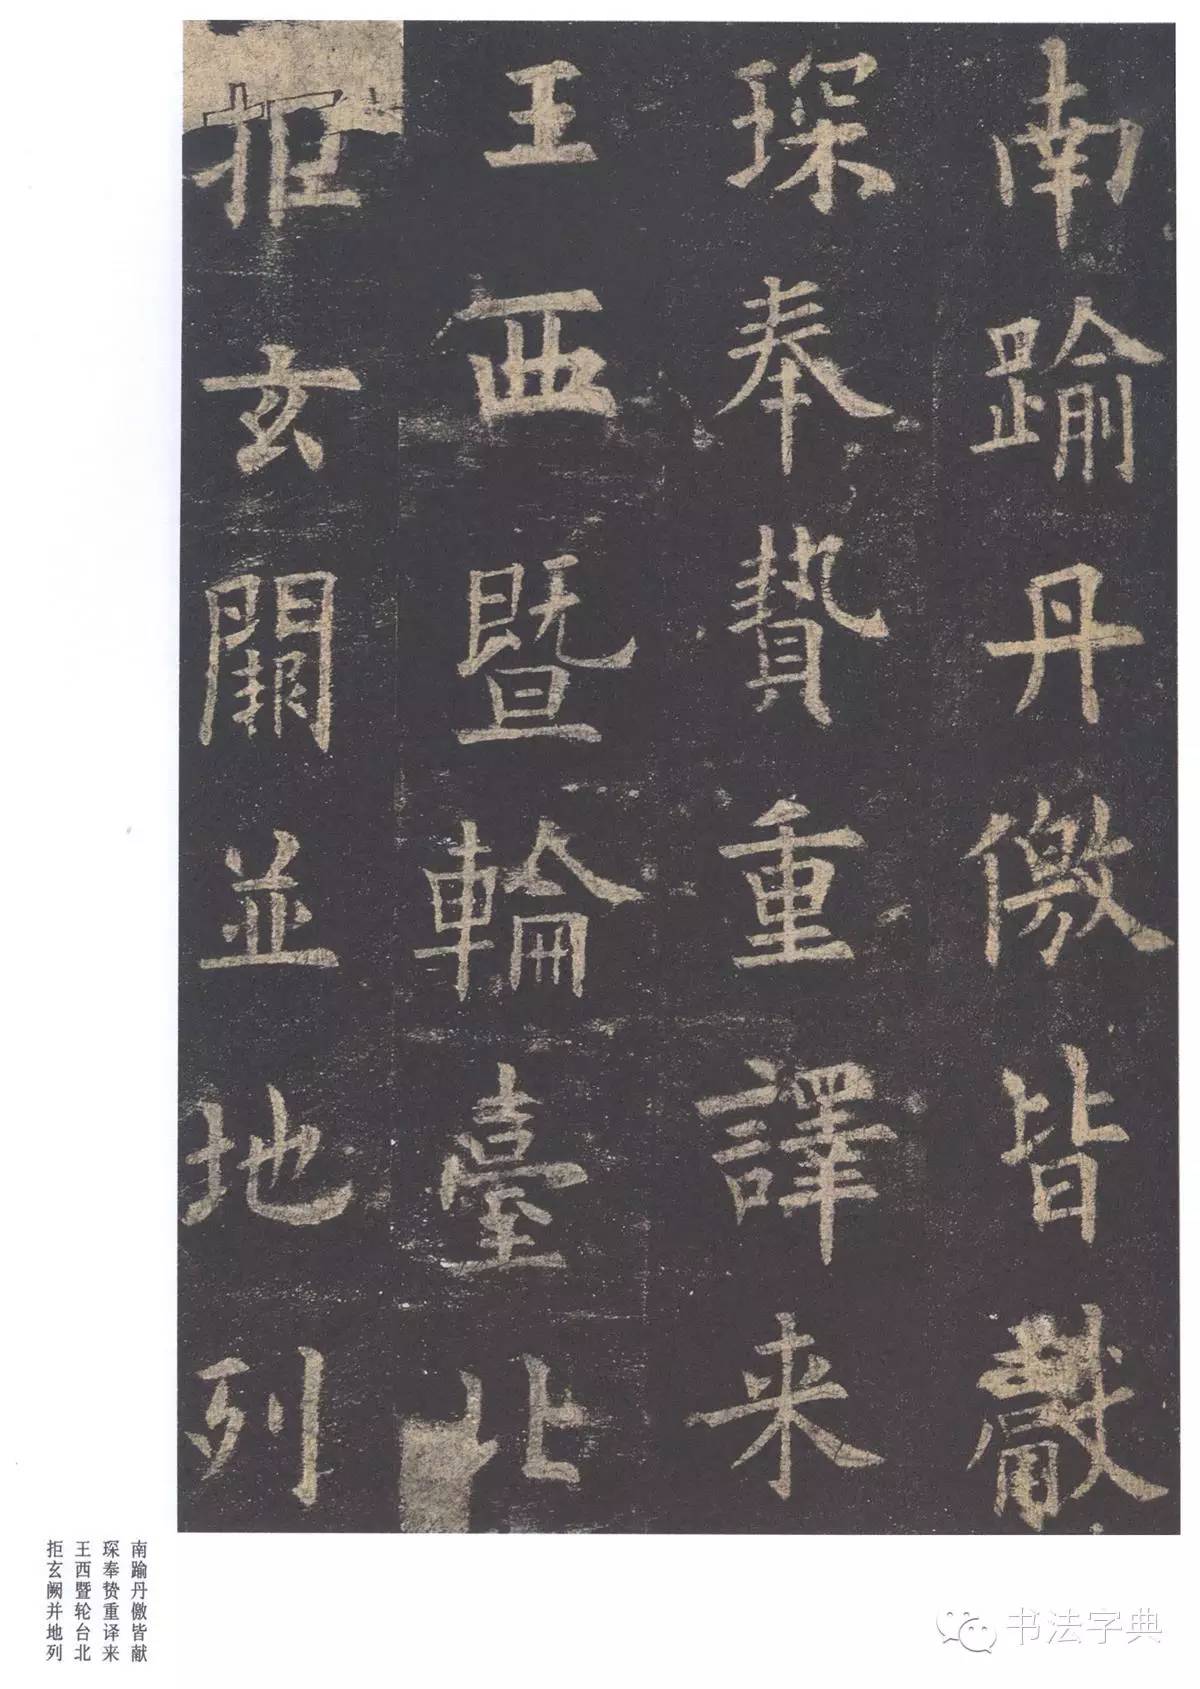 南踰丹儌皆獻
琛奉贄重譯来
王西暨輪臺北
拒玄闕並地列
南踰丹儌皆献
琛奉贽重译来
王西暨轮台北
拒玄阙并地列
书法字典